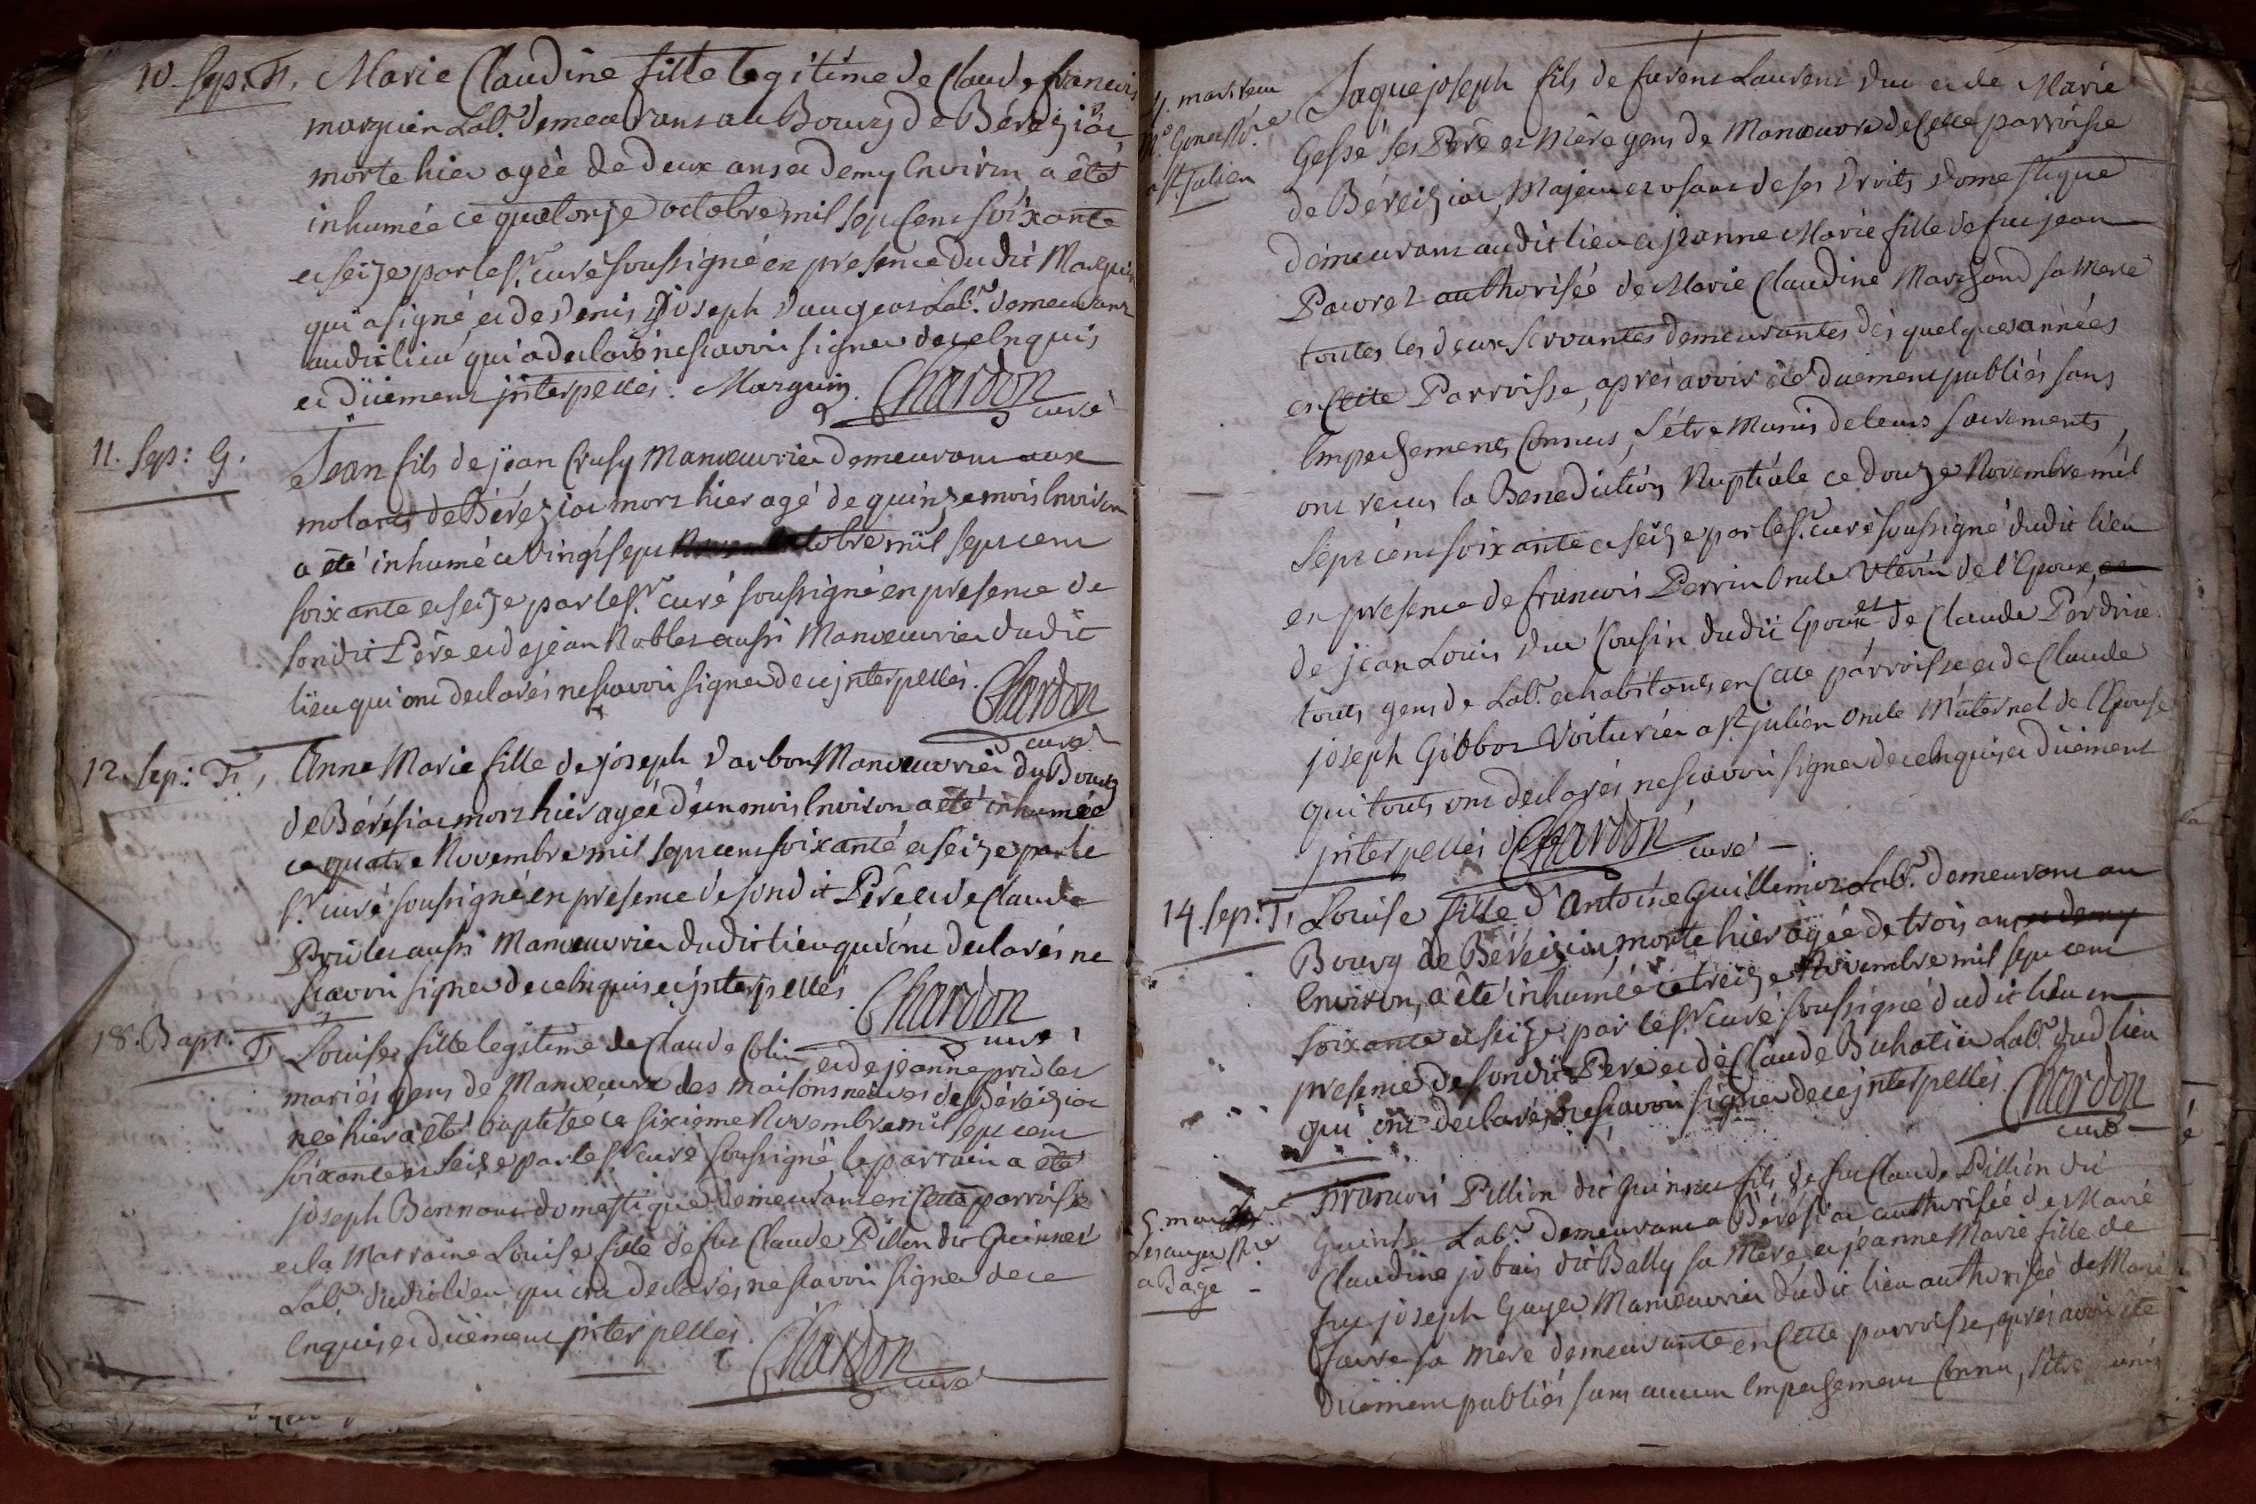 10. sep: F. Marie Claudine fille legitime de Claude francois
marguin Lab.r demeurant au Bourg de Béréiziat,
morte hier agée de deux ans et demy Environ a été
inhumée ce quatorze octobre mil sept Cent soixante
et seize par le Sr. curé soussigné en presence dudit Marguin
qui a signé et de Denis joseph Lab.r demeurant
audit lieu qui a declaré ne scavoir signer de ce Enquis
et düement jnterpellés. Marguin. Chardon
curé
11. sep: G. Jean fils de jean Crusy Manœuvrier demeurant aux
molards de Béréziat mort hier agé de quinze mois Environ
a été inhumé ce vingt sept octobre mil sept cent
soixante et seize par le Sr. curé soussigné en presence de
sondit Pére et de jean Noblet aussi Manœuvrier dudit
lieu qui ont declarés ne scavoir signer de ce jnterpellés. Chardon
curé
12. sep: F. Anne Marie fille de joseph Darbon Manœuvrier du Bourg
de Bérésiat mort hier agée d'un mois Environ a été inhumée
ce quatre Novembre mil sept cent soixante et seize par le
Sr. curé soussigné en presence de sondit Pére et de Claude
Prudet aussi Manœuvrier dudit lieu qui ont declarés ne
scavoir signer de ce Enquis et jnterpellés Chardon
curé
18. Bapt. F. Louise fille legitime de Claude Colin et de jeanne prudet
mariés gens de Manœuvre des maisons neuves de Béréiziat
née hier a été baptisée ce sixieme Novembre mil sept cent
soixante et seize par le Sr. curé soussigné, le parrain a été
joseph Bonnout domestique demeurant en Cette parroisse
et la Marraine Louise fille de fut Claude Pillon dit Guinnet
Lab.r dudit lieu qui ont declarés ne scavoir signer de ce
Enquis et düement jnterpellés. Chardon
curé
Jaque joseph fils de fut Laurent Duc et de Marie
Gesse ses Pére et Mére gens de Manœuvre de Cette parroisse
de Béréiziat, Majeur et usant de ses Droits Domestique
demeurant audit lieu et jeanne Marie fille de fut jean
Pauvret authorisée de Marie Claudine Marchand sa Mere
toutes les deux servantes demeurantes dès quelques années
en Cette Parroisse, aprés avoir été duement publiés sans
Empechement Connus, s'être Munis de leurs sacrements,
ont recus la Benediction Nuptiale ce douze Novembre mil
sept cent soixante et seize par le Sr. curé soussigné dudit lieu
en presence de francois Perrin Oncle Uterin de l'Epoux, et
de jean Louis Duc Cousin dudit Epoux et de Claude Perdrix
touts gens de Lab.r et habitants en Cette párroisse et de Claude
joseph Gibbot Voiturier a St. julien Oncle Maternel de l'Epouse
qui touts ont declarés ne scavoir signer de ce Enquis et duement
jnterpellés Chardon curé
14. sep: F. Louise fille d'Antoine Guillemot Lab.r demeurant au
Bourg de Béréiziat, morte hier agée de trois ans et demy
Environ, a été inhumée ce treize Novembre mil sept cent
soixante et seize par le Sr. curé soussigné dudit lieu en
presence de sondit Pere et de Claude Buhatier Lab.r dud lieu
qui ont declarés ne scavoir signer de ce jnterpellés. Chardon
curé
a Bagé
francois Pillion dit Guinnet fils de fut Claude Pillion dit
Guinnet Lab.r demeurant a Bérésiat authorisée de Marie
Claudine dit Bally sa Mere, et jeanne Marie fille de
fut joseph Guyet Manœuvrier dudit lieu authorisée de Marie
favre sa mere demeurante en Cette parroisse, aprés avoir été
düement publiés sans aucun Empechement Connu, s'être munis